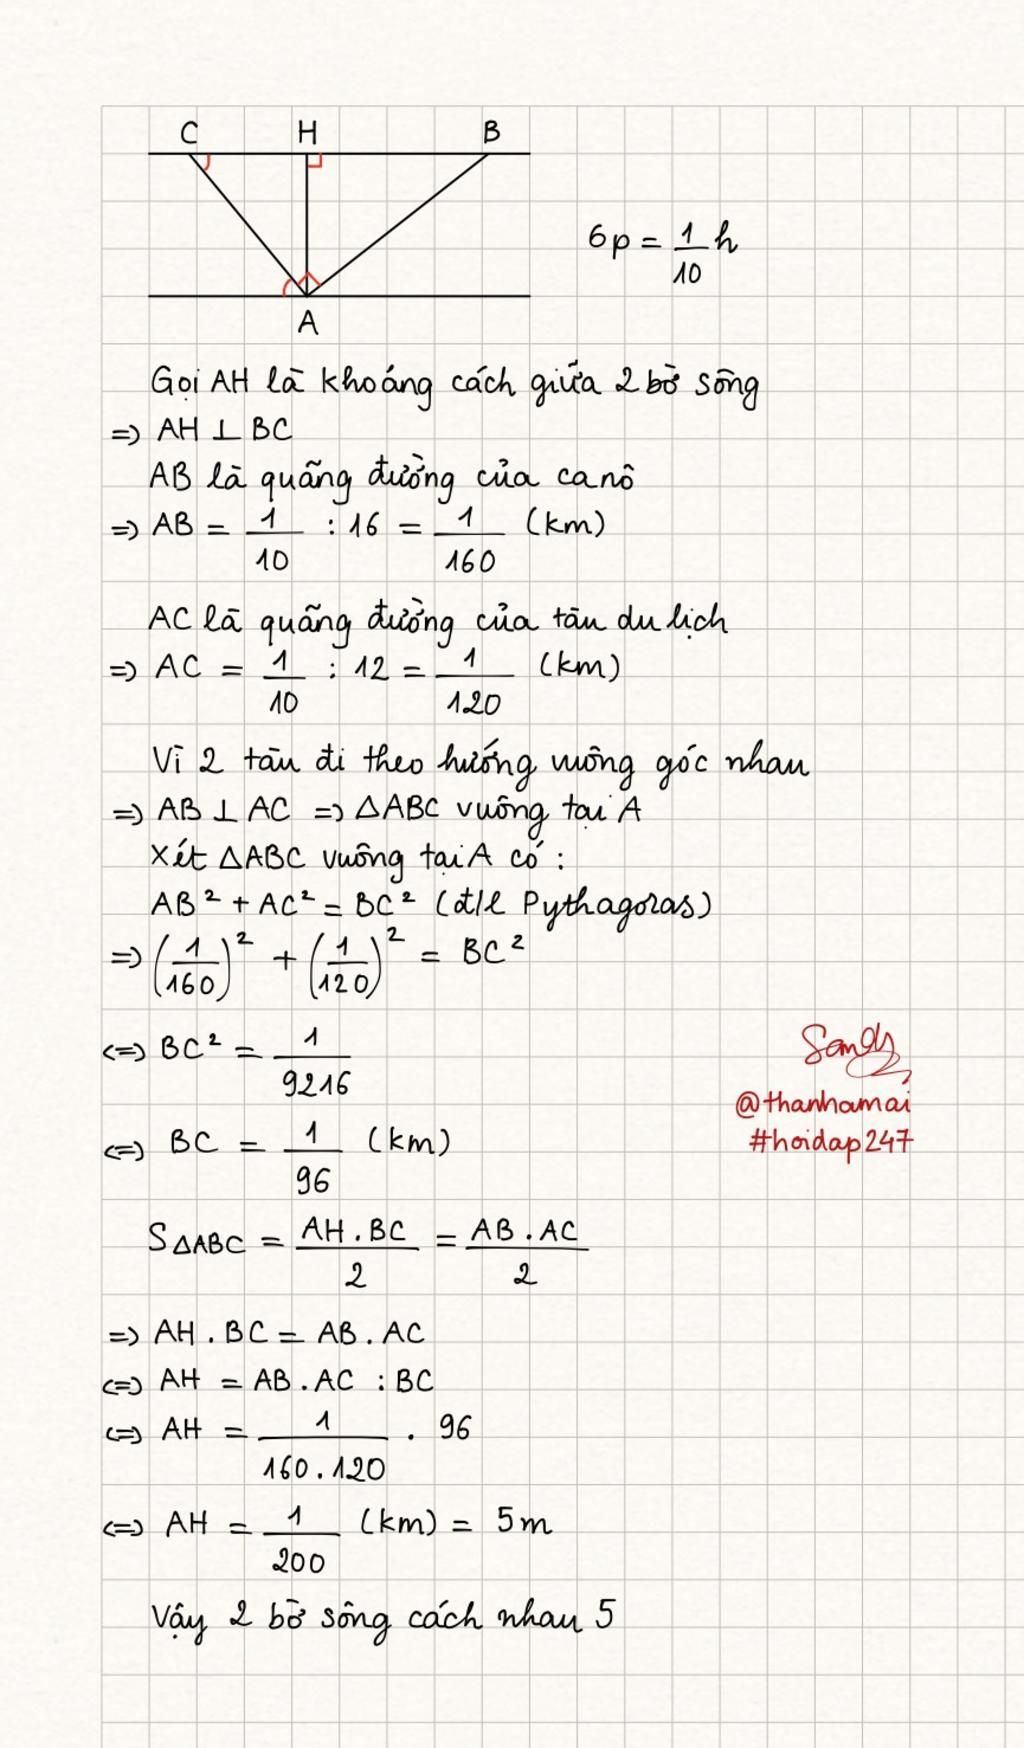 C H B
6p = 1/10 h
A
Gọi AH là khoảng cách giữa 2 bờ sông
=> AH ⊥ BC
AB là quãng đường của ca nô
=> AB = 1/10 : 16 = 1/160 (km)
AC là quãng đường của tàu du lịch
=> AC = 1/10 : 12 = 1/120 (km)
Vì 2 tàu đi theo hướng vuông góc nhau
=> AB ⊥ AC => ΔABC vuông tại A
Xét ΔABC vuông tại A có :
AB² + AC² = BC² (đ/l Pythagoras)
=> (1/160)² + (1/120)² = BC²
<=> BC² = 1/9216
<=> BC = 1/96 (km)
Sandy
@thanhamai
#hoidap247
SΔABC = AH . BC/2 = AB . AC/2
=> AH . BC = AB . AC
<=> AH = AB . AC : BC
<=> AH = 1/160 . 120 . 96
<=> AH = 1/200 (km) = 5m
Vậy 2 bờ sông cách nhau 5